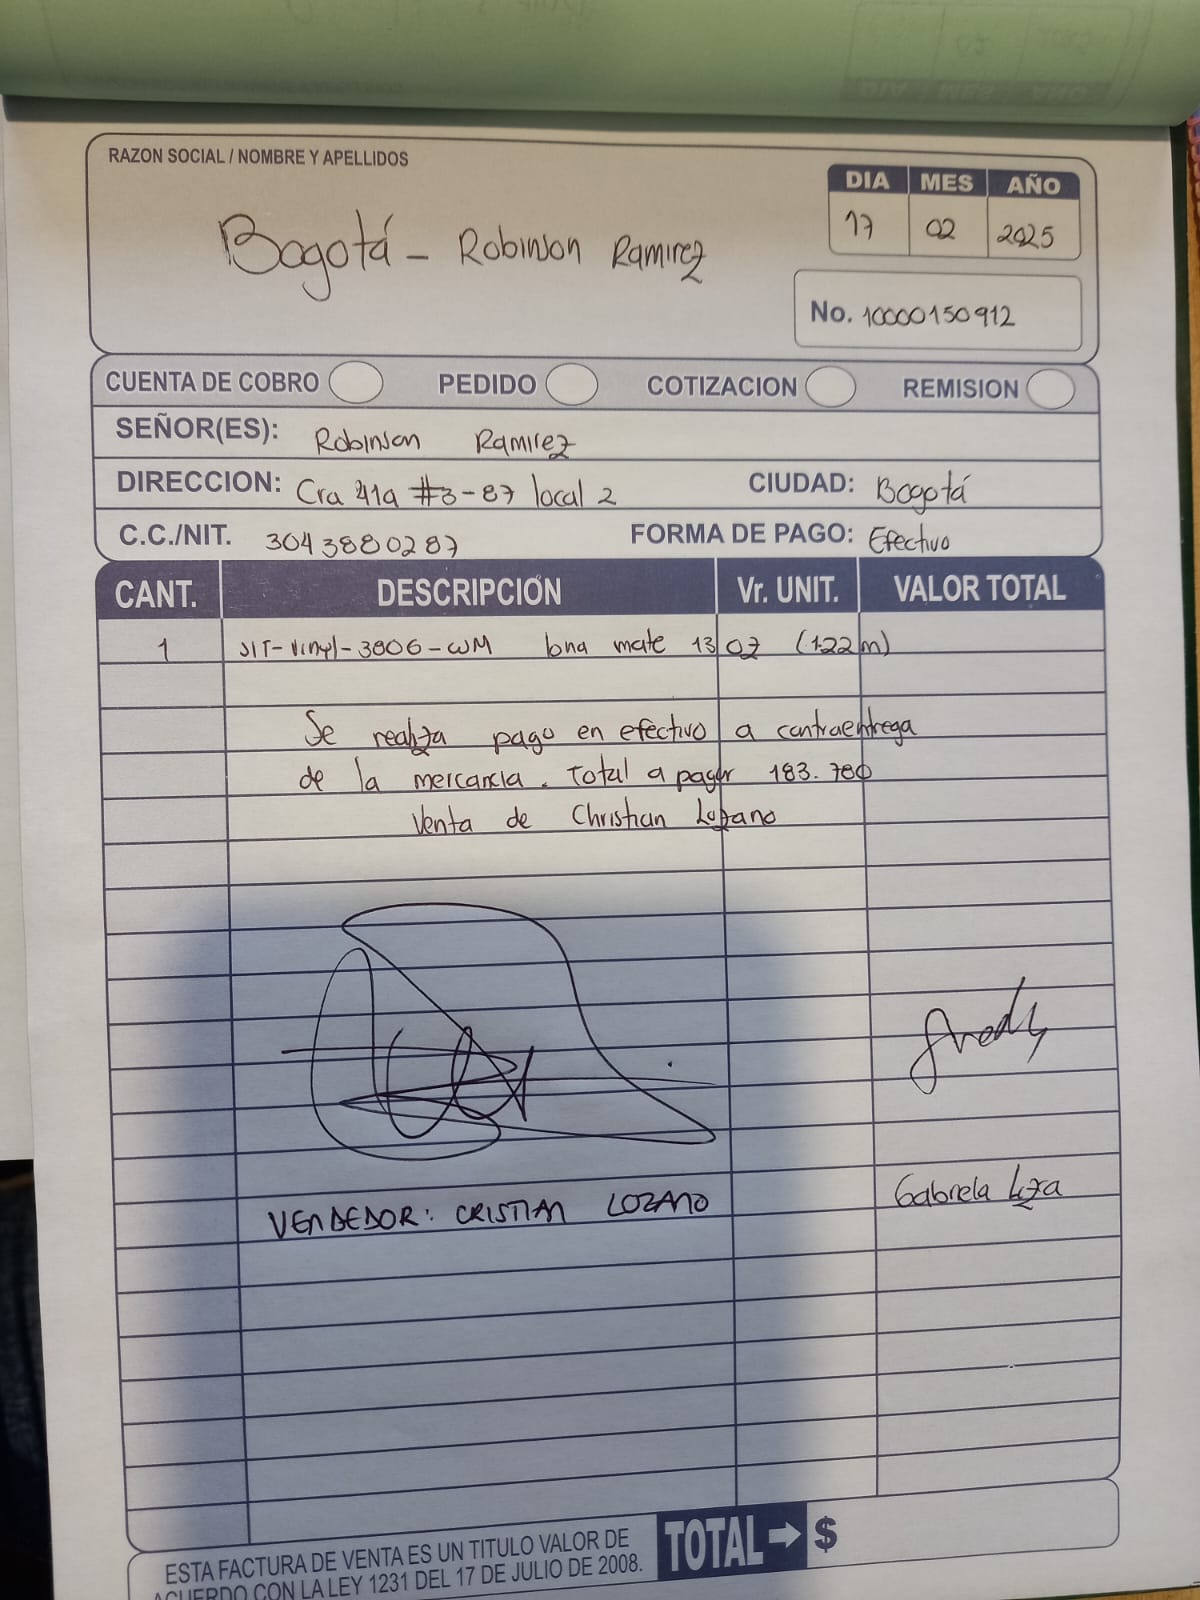 RAZON SOCIAL / NOMBRE Y APELLIDOS
Bogotá - Robinson Ramirez
DIA MES AÑO
17 02 2025
No. 10000150912
CUENTA DE COBRO PEDIDO COTIZACION REMISION
SEÑOR(ES): Robinson Ramirez
DIRECCION: Cra 41a #3-87 local 2 CIUDAD: Bogotá
C.C./NIT. 3043880287 FORMA DE PAGO: Efectivo
CANT. DESCRIPCIÓN Vr. UNIT. VALOR TOTAL
1 SIT-Vinyl-3806-WM lona mate 13 oz (1.22 m)
Se realiza pago en efectivo a contraentrega
de la mercancia. Total a pagar 183.780
Venta de Christian Lozano
VENDEDOR: CRISTIAN LOZANO
Gabriela
TOTAL → $
ESTA FACTURA DE VENTA ES UN TITULO VALOR DE
ACUERDO CON LA LEY 1231 DEL 17 DE JULIO DE 2008.